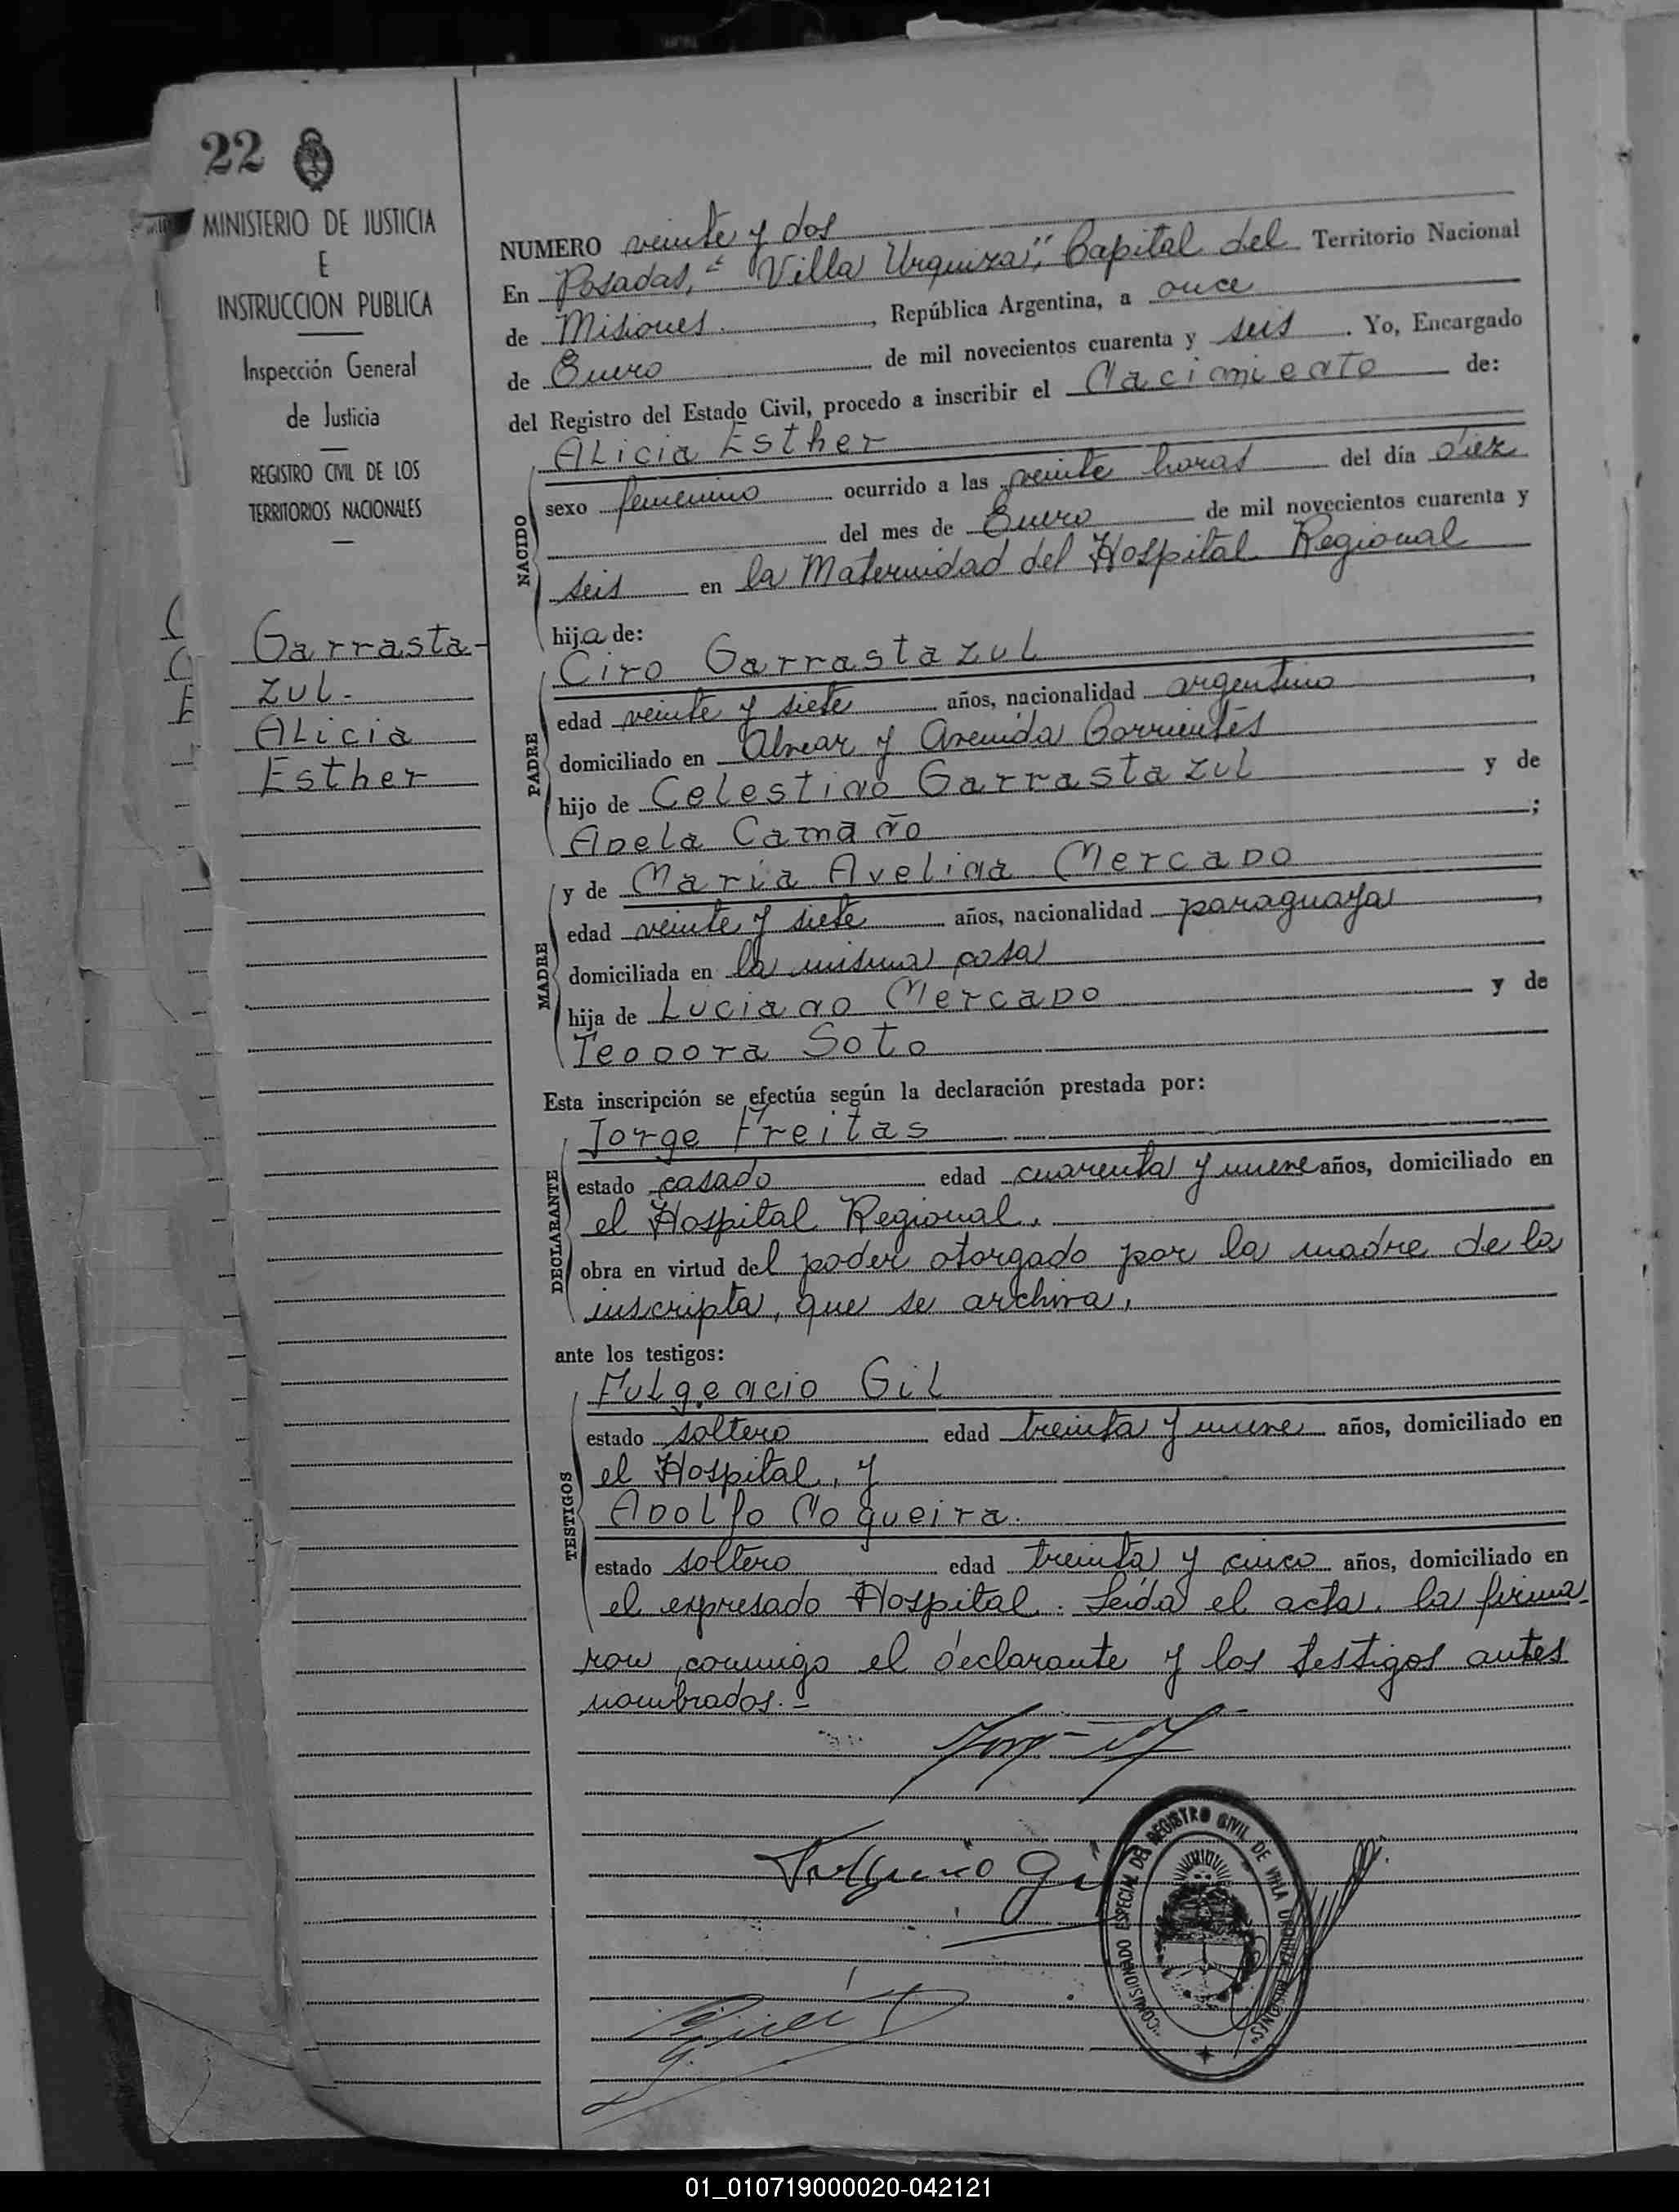 22
MINISTERIO DE JUSTICIA
E
INSTRUCCION PUBLICA
Inspección General
de Justicia
REGISTRO CIVIL DE LOS
TERRITORIOS NACIONALES
Garrasta-
zul.
Alicia
Esther
NUMERO veinte y dos
En Posadas, "Villa Urquiza", Capital del Territorio Nacional
de Misiones, República Argentina, a once
de Enero de mil novecientos cuarenta y seis. Yo, Encargado
del Registro del Estado Civil, procedo a inscribir el Nacimiento de:
NACIDO
Alicia Esther
sexo femenino ocurrido a las veinte horas del día diez
del mes de Enero de mil novecientos cuarenta y
seis en la Maternidad del Hospital Regional
hija de:
PADRE
Ciro Garrastazul
edad veinte y siete años, nacionalidad argentino,
domiciliado en Alvear y Avenida Corrientes
hijo de Celestino Garrastazul y de
Adela Camaño;
MADRE
y de María Avelina Mercado
edad veinte y siete años, nacionalidad paraguaya,
domiciliada en la misma casa
hija de Luciano Mercado y de
Teodora Soto
Esta inscripción se efectúa según la declaración prestada por:
DECLARANTE
Jorge Freitas
estado casado edad cuarenta y nueve años, domiciliado en
el Hospital Regional.
obra en virtud del poder otorgado por la madre de la
inscripta, que se archiva.
ante los testigos:
TESTIGOS
Fulgencio Gil
estado soltero edad treinta y nueve años, domiciliado en
el Hospital, y
Adolfo Nogueira.
estado soltero edad treinta y cinco años, domiciliado en
el expresado Hospital. Leída el acta, la firma-
ron conmigo el declarante y los testigos antes
nombrados.-
Fulgencio Gil
"COMISIONADO ESPECIAL DEL REGISTRO CIVIL DE VILLA URQUIZA MISIONES"
01_010719000020-042121